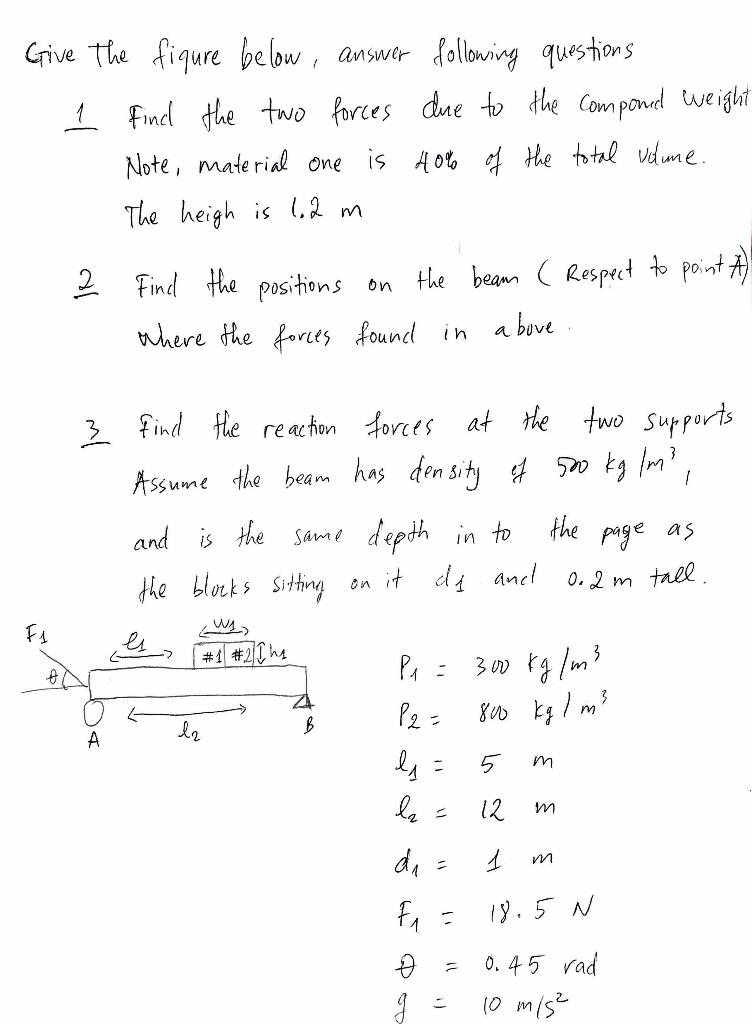 Give The figure below, answer following questions
1 Find the two forces due to the compond weight
Note, material one is 40% of the total volume.
The heigh is 1.2 m
2 Find the positions on the beam ( Respect to point A)
where the forces found in above.
3 Find the reaction forces at the two supports
Assume the beam has density of 500 kg/m³,
and is the same depth in to the page as
the blocks sitting on it d1 and 0.2 m tall.
F1
θ
l1
w1
#1 #2 h1
l2
A
B
P1 = 300 kg/m³
P2 = 800 kg/m³
l1 = 5 m
l2 = 12 m
d1 = 1 m
F1 = 18.5 N
θ = 0.45 rad
g = 10 m/s²